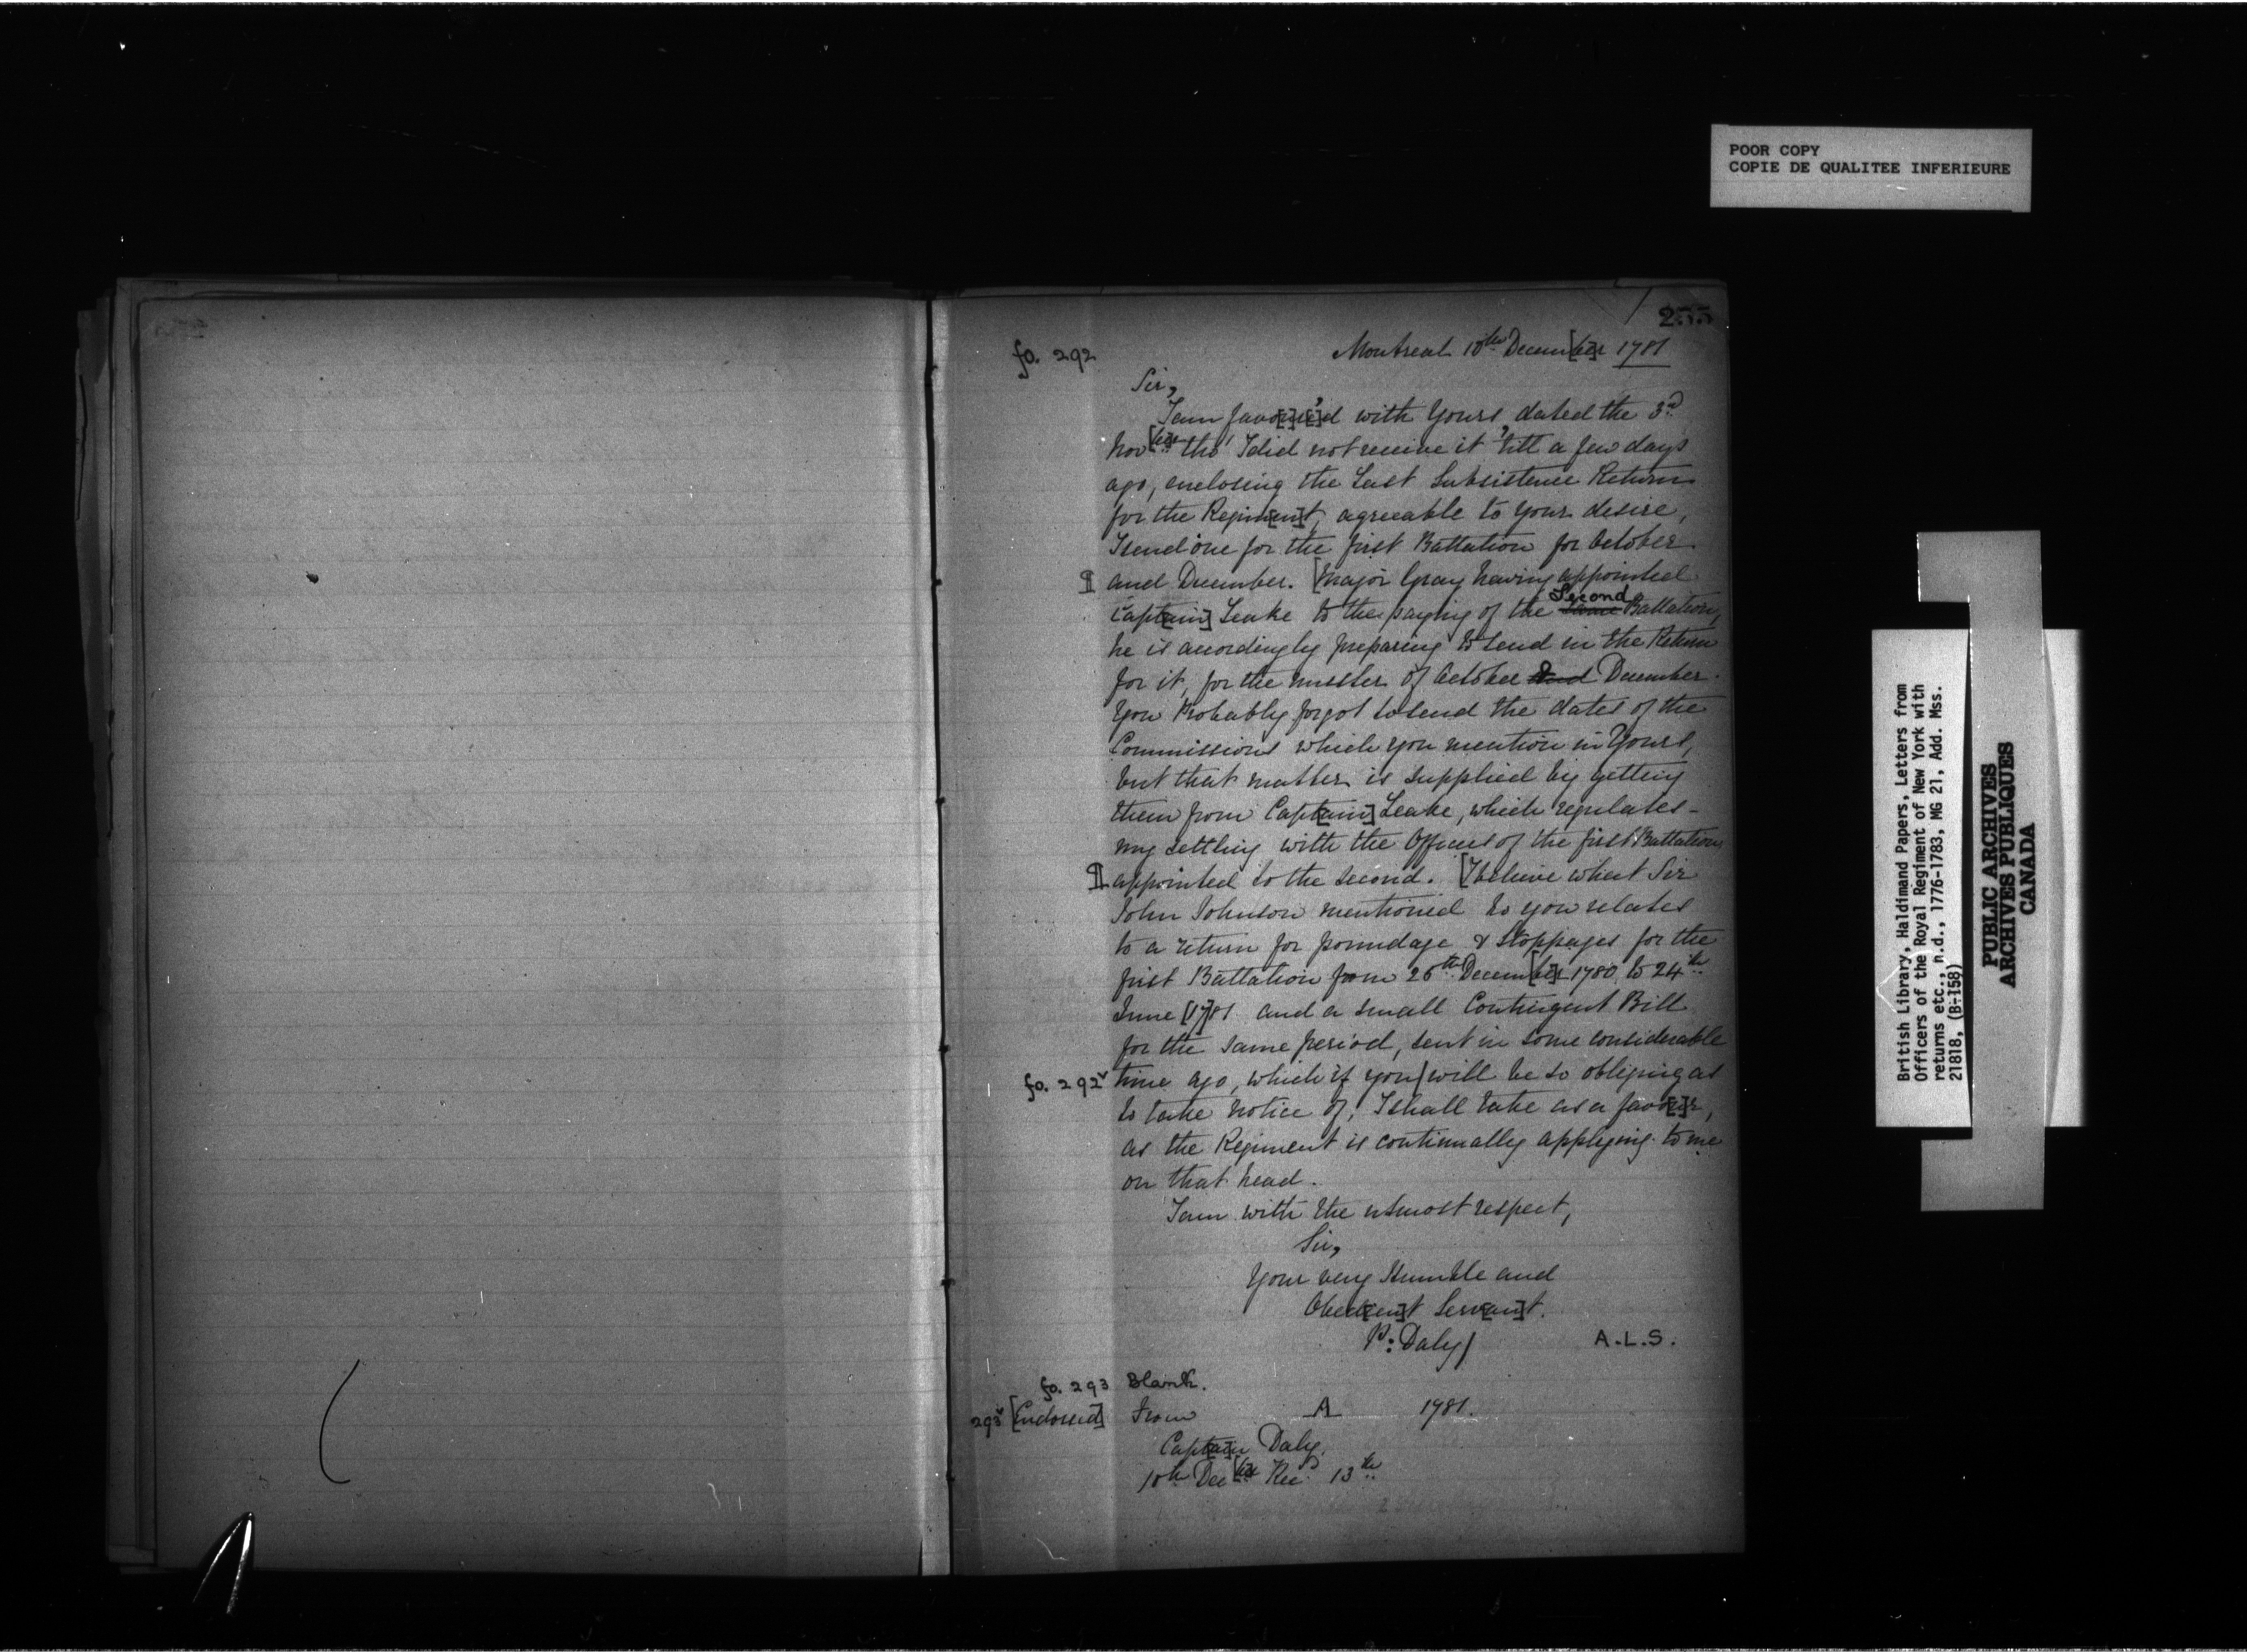 POOR COPY
COPIE DE QUALITEE INFERIEURE
255
fo. 292 Montreal 10th Decem[be]r 1781
Sir,
I am favo[u]r[e]'d with Yours, dated the 3d
Nov[be]r tho' I did not receive it 'till a few days
ago, enclosing the Last Subsistence Return
for the Regim[en]t, agreeable to your desire,
I send one for the first Battalion for October
¶ and December. [Major Gray having appointed
Capt[ain] Leake to the paying of the Second Battalion,
he is accordingly preparing to send in the Return
for it, for the muster of October and December.
You Probably forgot to send the dates of the
Commissions which you mention in Yours,
but that matter is supplied by getting
them from Capt[ain] Leake, which regulates
my settling with the Officers of the first Battalion
¶ appointed to the second. [I believe what Sir
John Johnson mentioned to you relates
to a return for poundage & stoppages for the
first Battalion from 25th Decem[be]r 1780 to 24th
June [17]81 and a small Contingent Bill
for the same period, sent in some considerable
fo. 292v time ago, which if you/will be so obliging as
to take notice of, I shall take as a favo[u]r,
as the Regiment is continually applying to me
on that head.
I am with the utmost respect,
Sir,
Your very Humble and
Obed[ien]t Serv[an]t.
P: Daly/ A.L.S.
fo. 293 Blank.
293v [Endorsed] From A 1781.
Capt[ai]n Daly.
10th Dec[be]r Rec'd 13th
British Library, Haldimand Papers, Letters from
Officers of the Royal Regiment of New York with
returns etc., n.d., 1776-1783, MG 21, Add. Mss.
21818, (B-158)
PUBLIC ARCHIVES
ARCHIVES PUBLIQUES
CANADA